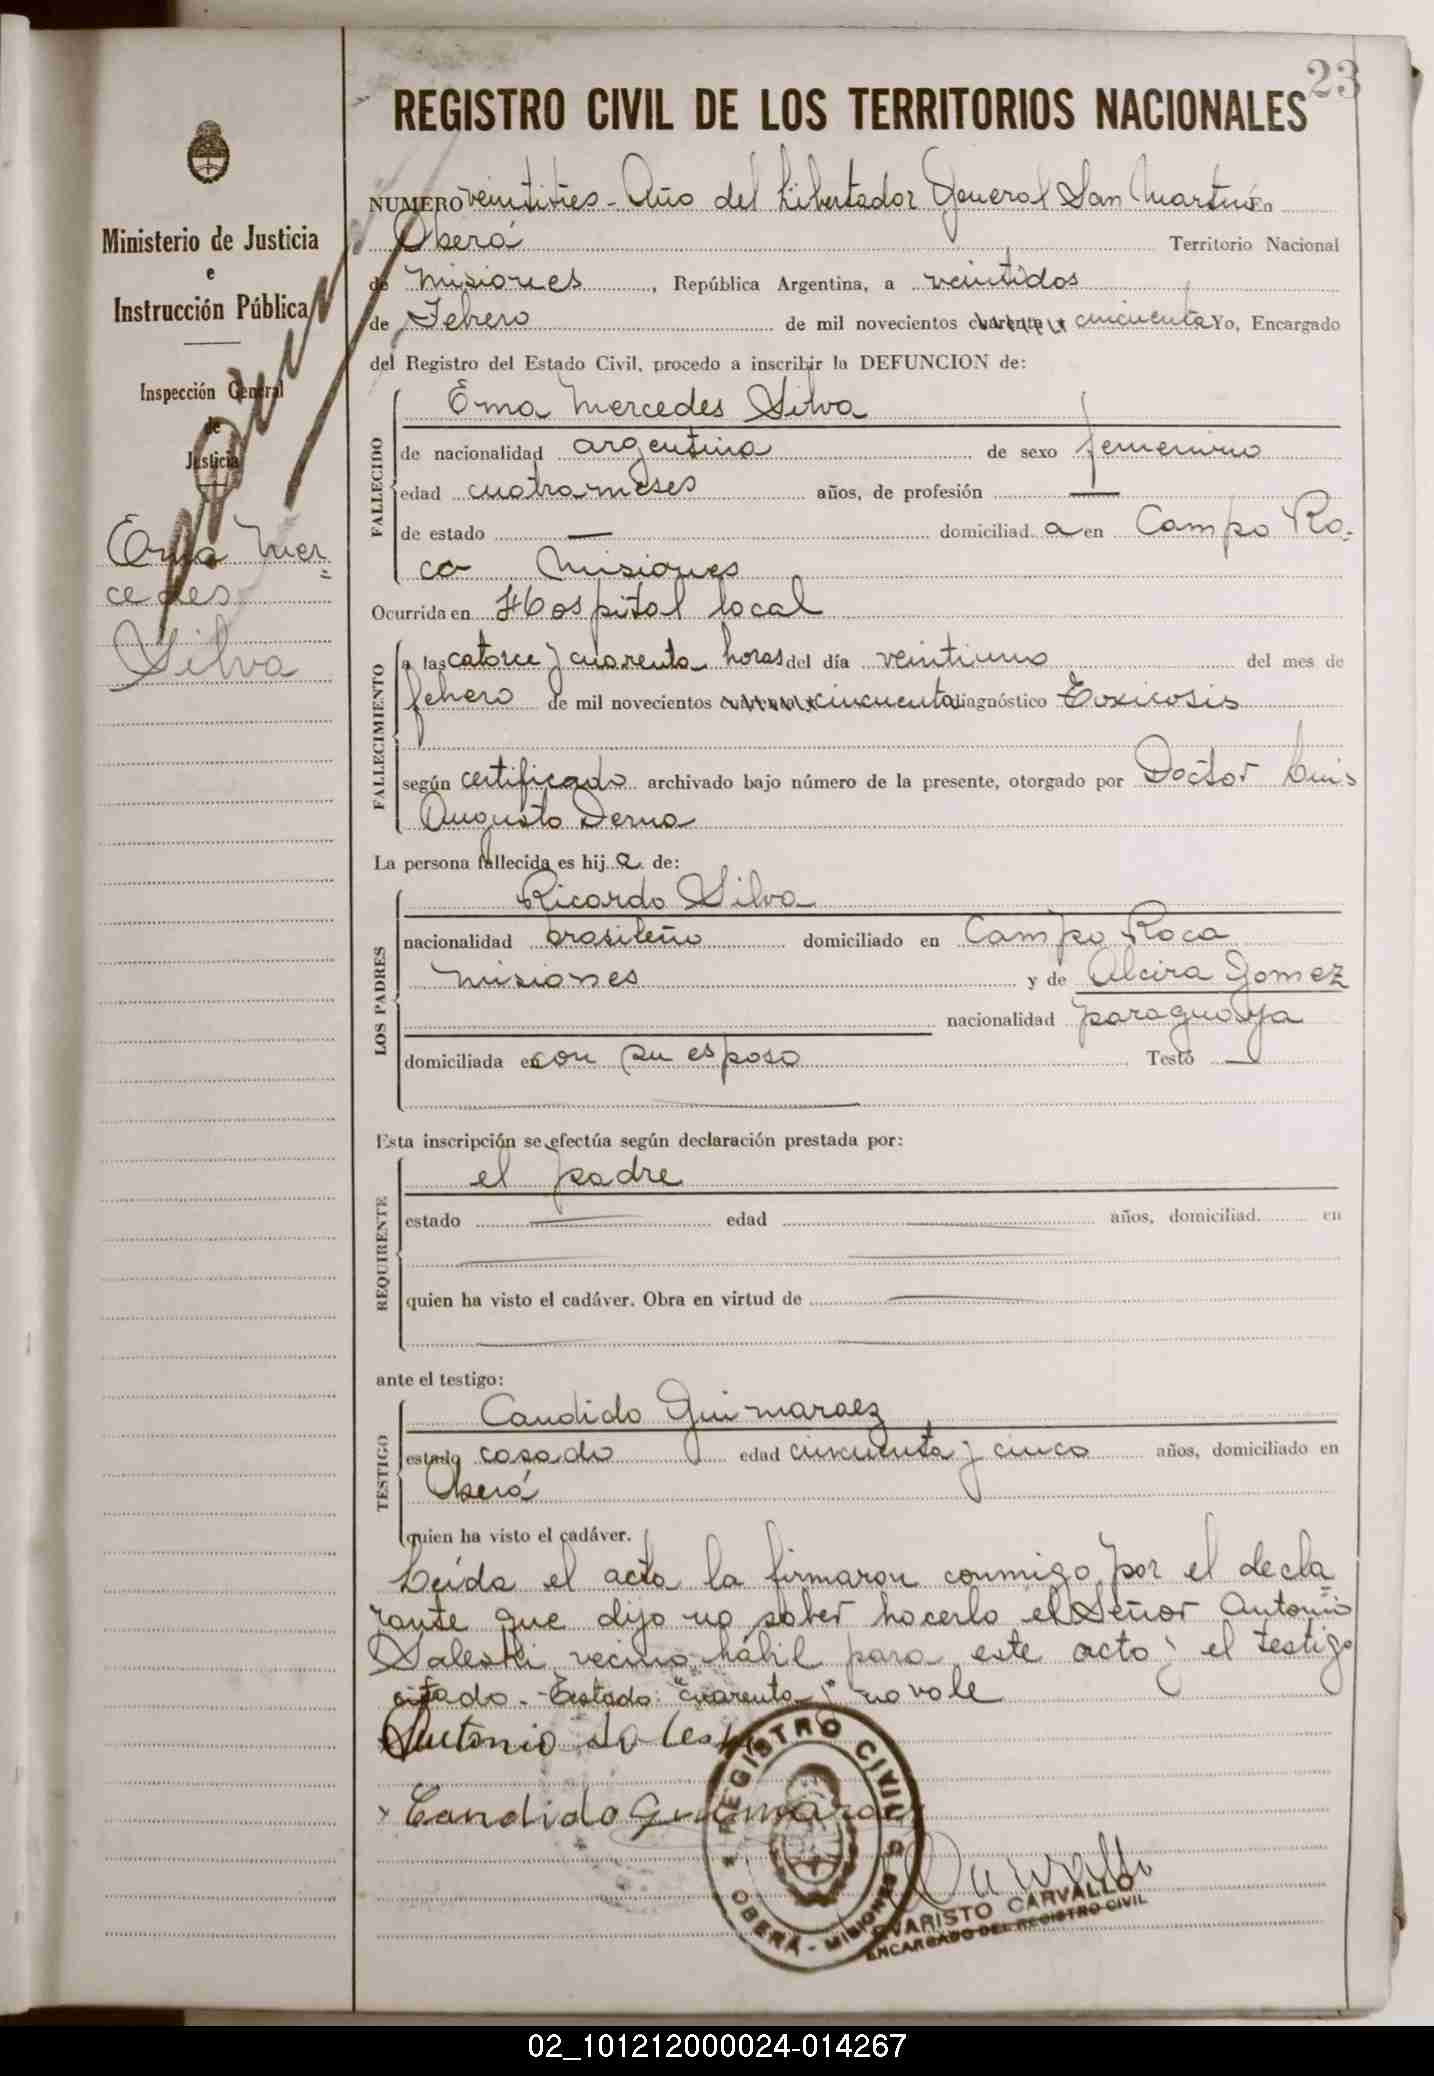 23
REGISTRO CIVIL DE LOS TERRITORIOS NACIONALES
Ministerio de Justicia
e
Instrucción Pública
Inspección General
de
Justicia
Ema Mer=
cedes
Silva
NUMERO veintitres - Año del Libertador General San Martin En
Oberá Territorio Nacional
de Misiones, República Argentina, a veintidos
de Febrero de mil novecientos cuarenta y cincuenta Yo, Encargado
del Registro del Estado Civil, procedo a inscribir la DEFUNCION de:
FALLECIDO
Ema Mercedes Silva
de nacionalidad argentina de sexo femenino
edad cuatro meses años, de profesión —
de estado — domiciliad a en Campo Ro-
ca Misiones
Ocurrida en Hospital local
FALLECIMIENTO
a las catorce y cuarenta horas del día veintiuno del mes de
febrero de mil novecientos cuarenta y cincuenta diagnóstico Toxicosis
según certificado archivado bajo número de la presente, otorgado por Doctor Luis
Augusto Derna
La persona fallecida es hij a de:
LOS PADRES
Ricardo Silva
nacionalidad brasileño domiciliado en Campo Roca
Misiones y de Alcira Gomez
nacionalidad paraguaya
domiciliada en con su esposo Testó —
Esta inscripción se efectúa según declaración prestada por:
REQUIRENTE
el padre
estado — edad — años, domiciliad. en
quien ha visto el cadáver. Obra en virtud de —
ante el testigo:
TESTIGO
Candido Guimaraez
estado casado edad cincuenta y cinco años, domiciliado en
Oberá
quien ha visto el cadáver.
Leída el acta la firmaron conmigo por el decla=
rante que dijo no saber hacerlo el Señor Antonio
Saleski vecino hábil para este acto y el testigo
citado. - Testado: "cuarenta y" no vale
Antonio Saleski
Candido Guimaraez
REGISTRO CIVIL
OBERÁ - MISIONES
EVARISTO CARVALLO
ENCARGADO DEL REGISTRO CIVIL
02_101212000024-014267